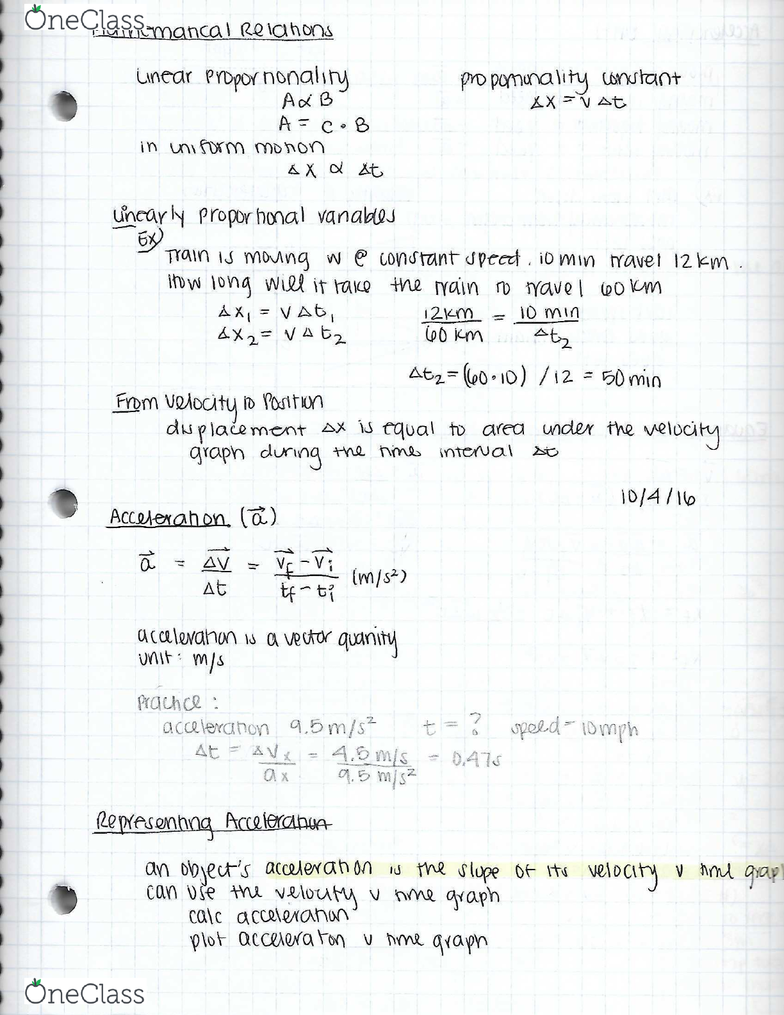 OneClass
Mathematical Relations
Linear Proportionality
proportionality constant
A ∝ B
Δx = v Δt
A = c • B
in uniform motion
Δx ∝ Δt
Linearly proportional variables
Ex)
Train is moving w @ constant speed. 10 min travel 12 km.
How long will it take the train to travel 60 km
Δx₁ = vΔt₁
12km / 60 km = 10 min / Δt₂
Δx₂ = vΔt₂
Δt₂ = (60•10) / 12 = 50 min
From Velocity to Position
displacement Δx is equal to area under the velocity
graph during the time interval Δt
10/4/16
Acceleration (a⃗)
a⃗ = Δv⃗ / Δt = (v⃗f - v⃗i) / (tf - ti) (m/s²)
acceleration is a vector quanity
unit: m/s
Practice:
acceleration 9.5 m/s² t = ? speed = 10mph
Δt = ΔVx / ax = 4.5 m/s / 9.5 m/s² = 0.47s
Representing Acceleration
an object's acceleration is the slope of its velocity v time grap
can use the velocity v time graph
calc acceleration
plot acceleraton v time graph
OneClass